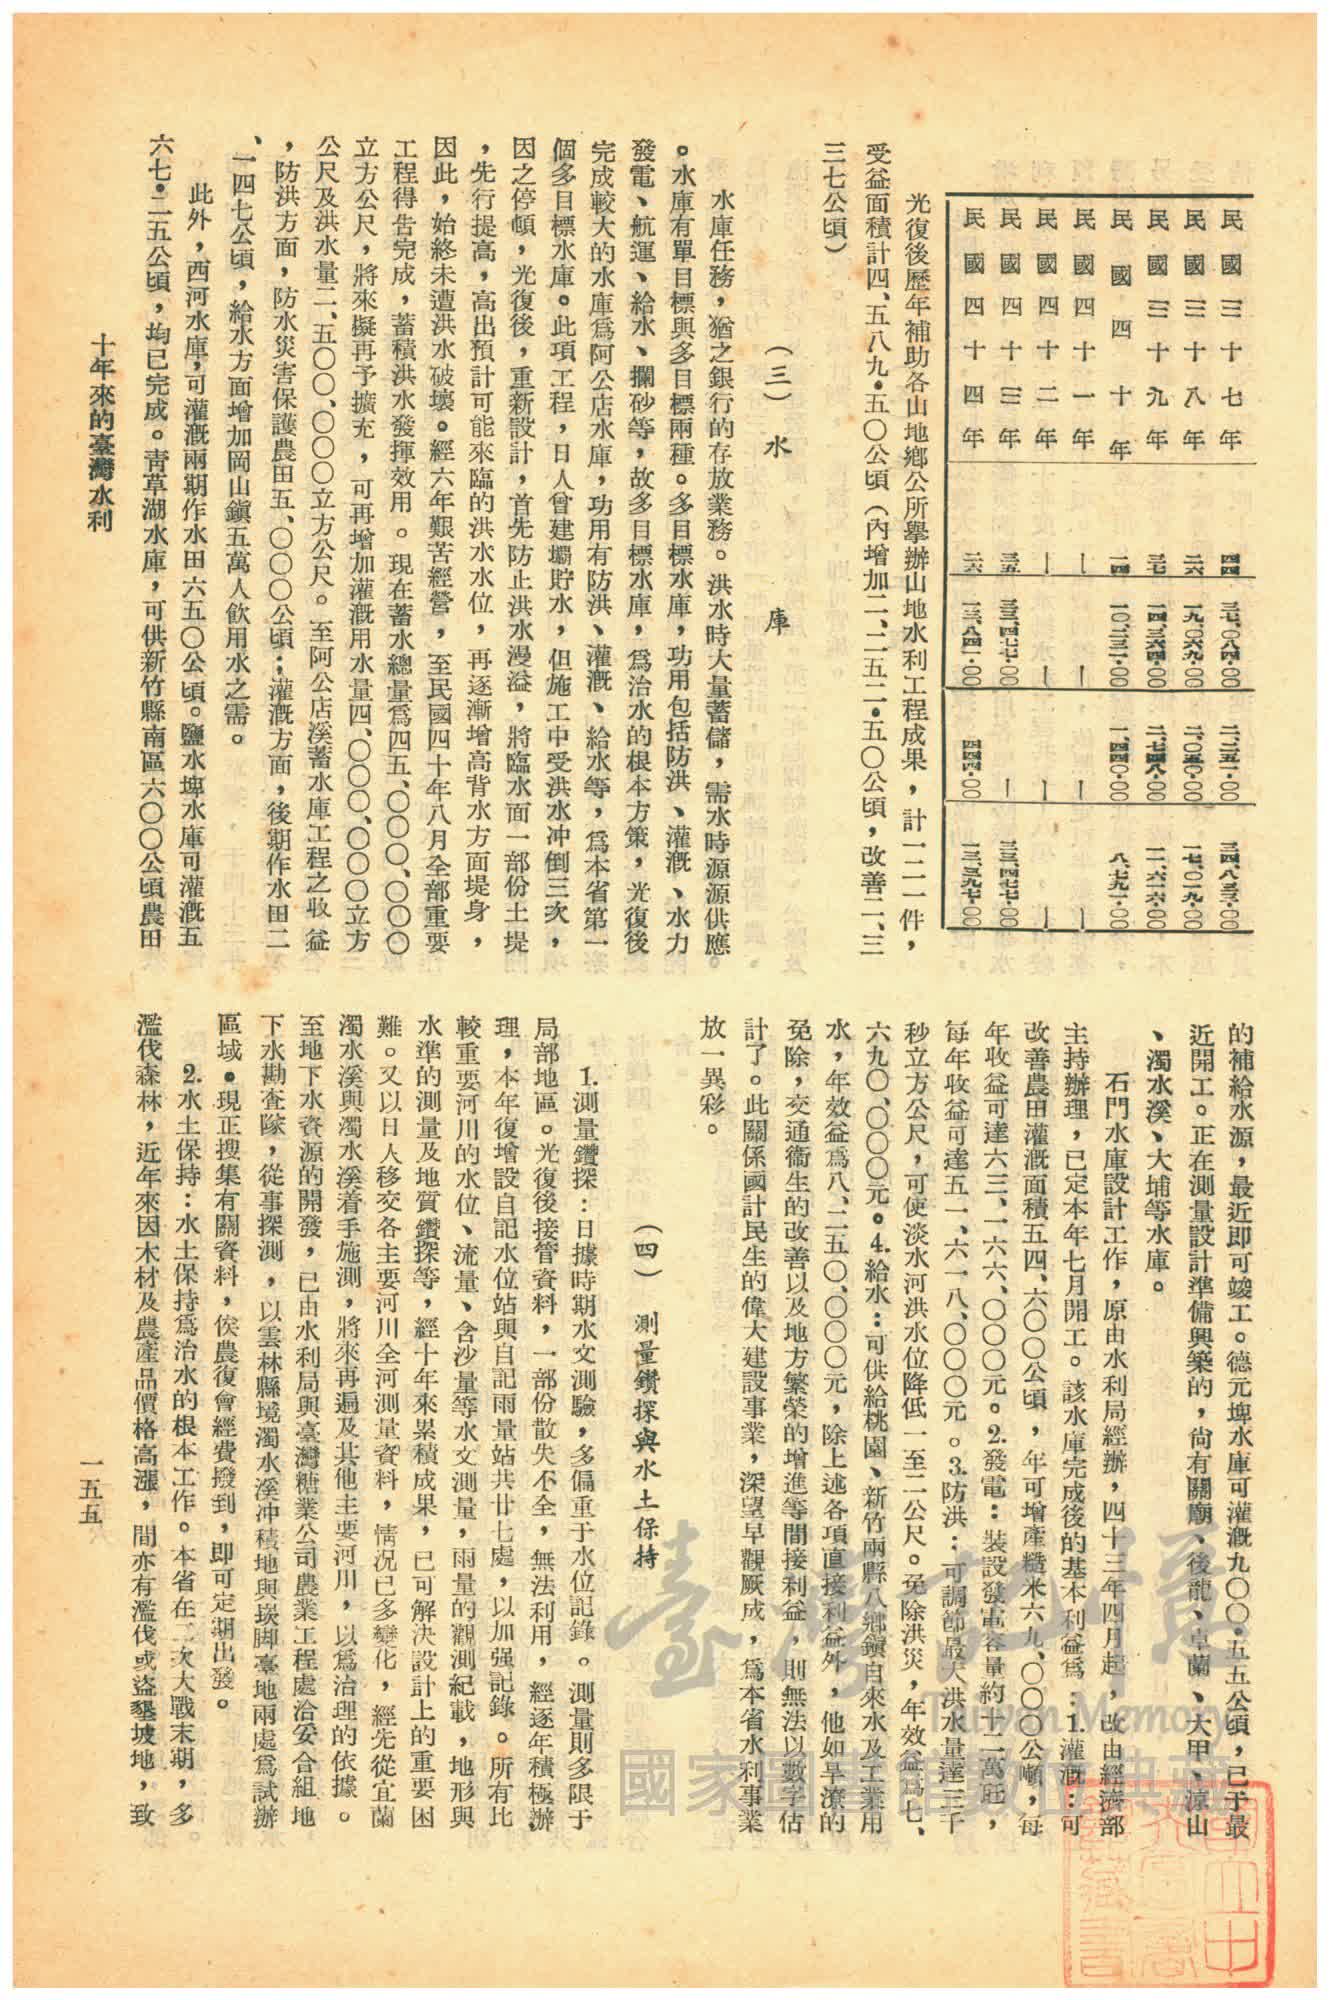 民國三十七年　四四
民國三十八年　二六
民國三十九年　三七
民國四十年　一四
民國四十一年　—　—　—　—
民國四十二年　—　—　—　—
民國四十三年　三五　—
民國四十四年　二六
光復後歷年補助各山地鄉公所舉辦山地水利工程成果，計一二一件，
受益面積計四、五八九・五〇公頃（內增加二、二五二・五〇公頃，改善二、三
三七公頃）
（三）水庫
水庫任務，猶之銀行的存放業務。洪水時大量蓄儲，需水時源源供應
。水庫有單目標與多目標兩種。多目標水庫，功用包括防洪、灌漑、水力
發電、航運、給水、攔砂等，故多目標水庫，爲治水的根本方策，光復後
完成較大的水庫爲阿公店水庫，功用有防洪、灌漑、給水等，爲本省第一
個多目標水庫。此項工程，日人曾建壩貯水，但施工中受洪水冲倒三次，
因之停頓，光復後，重新設計，首先防止洪水漫溢，將臨水面一部份土堤
，先行提高，高出預計可能來臨的洪水水位，再逐漸增高背水方面堤身，
因此，始終未遭洪水破壞。經六年艱苦經營，至民國四十年八月全部重要
工程得告完成，蓄積洪水發揮效用。現在蓄水總量爲四五、〇〇〇、〇〇〇
立方公尺，將來擬再予擴充，可再增加灌漑用水量四、〇〇〇、〇〇〇立方
公尺及洪水量二、五〇〇、〇〇〇立方公尺。至阿公店溪蓄水庫工程之收益
，防洪方面，防水災害保護農田五、〇〇〇公頃：灌漑方面，後期作水田二
、一四七公頃，給水方面增加岡山鎭五萬人飲用水之需。
此外，西河水庫，可灌漑兩期作水田六五〇公頃。鹽水埤水庫可灌漑五
六七・二五公頃，均已完成。靑草湖水庫，可供新竹縣南區六〇〇公頃農田
十年來的臺灣水利
的補給水源，最近即可竣工。德元埤水庫可灌漑九〇〇・五五公頃，已于最
近開工。正在測量設計準備興築的，尙有關廟、後龍、卓蘭、大甲、凉山
、濁水溪、大埔等水庫。
石門水庫設計工作，原由水利局經辦，四十三年四月起，改由經濟部
主持辦理，已定本年七月開工。該水庫完成後的基本利益爲：1.灌漑：可
改善農田灌漑面積五四、六〇〇公頃，年可增產糙米六九、〇〇〇公噸，每
年收益可達六三、一六六、〇〇〇元。2.發電：裝設發電容量約十二萬瓩，
每年收益可達五一、六一八、〇〇〇元。3.防洪：可調節最大洪水量達三千
秒立方公尺，可使淡水河洪水位降低一至二公尺。免除洪災，年效益爲七、
六九〇、〇〇〇元。4.給水：可供給桃園、新竹兩縣八鄉鎭自來水及工業用
水，年效益爲八、二五〇、〇〇〇元，除上述各項直接利益外，他如旱潦的
免除，交通衞生的改善以及地方繁榮的增進等間接利益，則無法以數字估
計了。此關係國計民生的偉大建設事業，深望早觀厥成，爲本省水利事業
放一異彩。
（四）測量鑽探與水土保持
1.測量鑽探：日據時期水文測驗，多偏重于水位記錄。測量則多限于
局部地區。光復後接管資料，一部份散失不全，無法利用，經逐年積極辦
理，本年復增設自記水位站與自記雨量站共廿七處，以加强記錄。所有比
較重要河川的水位、流量、含沙量等水文測量，雨量的觀測紀載，地形與
水準的測量及地質鑽探等，經十年來累積成果，已可解決設計上的重要困
難。又以日人移交各主要河川全河測量資料，情況已多變化，經先從宜蘭
濁水溪與濁水溪着手施測，將來再遍及其他主要河川，以爲治理的依據。
至地下水資源的開發，已由水利局與臺灣糖業公司農業工程處洽妥合組地
下水勘査隊，從事探測，以雲林縣境濁水溪冲積地與崁脚臺地兩處爲試辦
區域。現正搜集有關資料，俟農復會經費撥到，即可定期出發。
2.水土保持：水土保持爲治水的根本工作。本省在二次大戰末期，多
濫伐森林，近年來因木材及農產品價格高漲，間亦有濫伐或盜墾坡地，致
一五五
臺灣記憶
Taiwan Memory
國家圖書館數位典藏